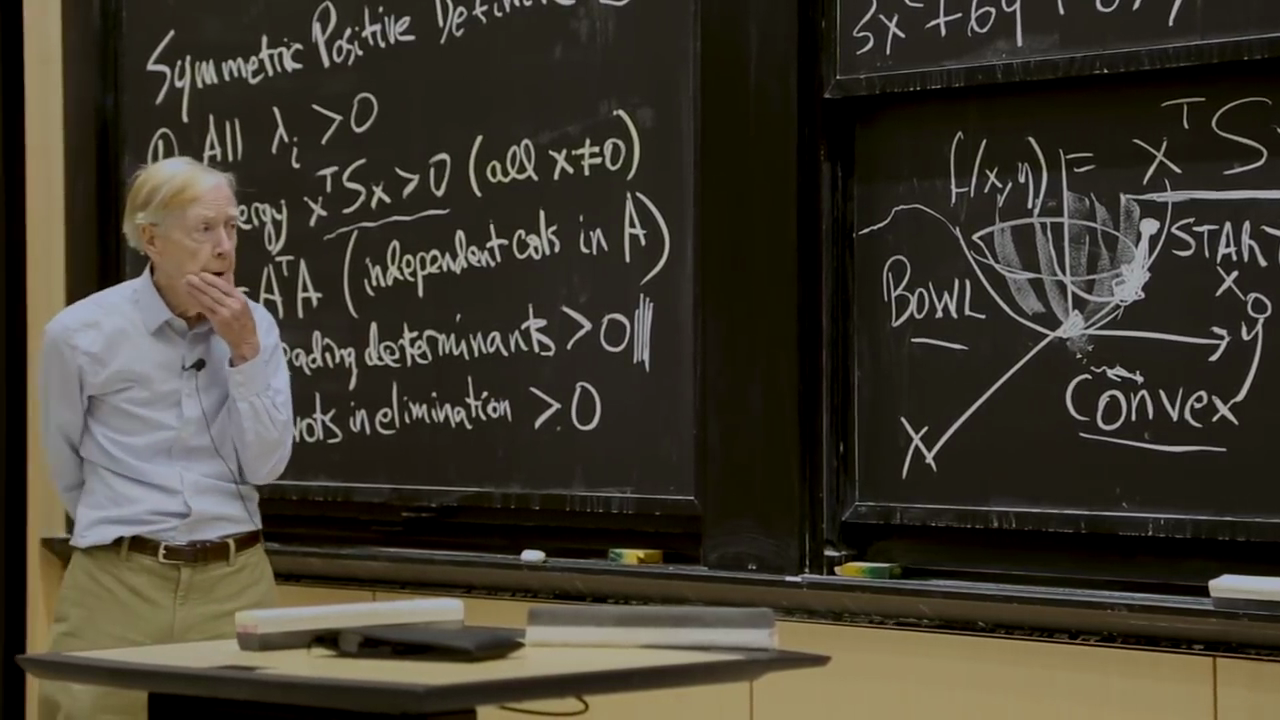 Symmetric Positive Definite
① All λᵢ > 0
ergy xᵀSx > 0 (all x ≠ 0)
AᵀA (independent cols in A)
eading determinants > 0
vots in elimination > 0
f(x,y) = xᵀS
START
x₀
BOWL
y
Convex
X